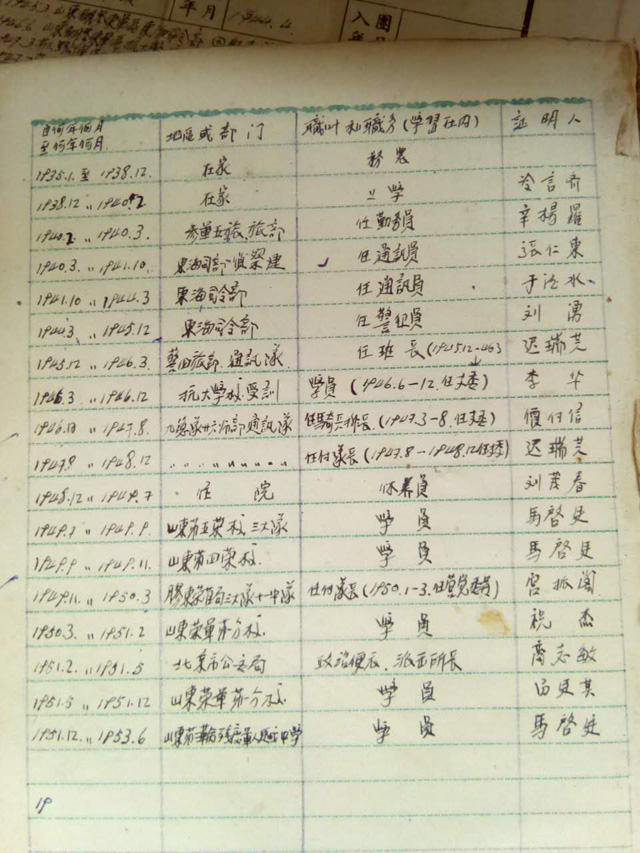 年月
1944.4
入
團
自何年何月
至何年何月
地區或部门
職业和職务(學習在内)
証明人
1935.1.至1938.12.
在家
務農
1938.12〃1940.2
在家
上學
冷言齐
1940.2〃1940.3.
旅部
任勤務員
辛楊羅
1940.3.〃1941.10.
東海司部偵察連
任通訊員
張仁東
1941.10〃1944.3
東海司令部
任通訊員
于 水
1944.3〃1945.12
東海司令部
任警卫員
刘勇
1945.12〃1946.3.
旅部.通訊隊
任班長(1945.12-46.3
迟瑞芝
1946.3〃1946.12
抗大學校.受訓
學員(1946.6-12.任支委)
李华
1946.12〃1947.8.
九縱隊廿六师部通訊隊
任騎兵排長(1947.3-8.任支委)
1947.8〃1948.12
〃〃〃〃〃〃〃〃
任付隊長(1947.8-1948.12任支委)
迟瑞芝
1948.12〃1949.7
住院
休养員
刘茂春
1949.7〃1949.9.
山東第五荣校.三大隊
學員
馬啓廷
1949.9〃1949.11.
山東第四荣校.
學員
馬啓廷
1949.11.〃1950.3
膠東荣管局三大隊十一中隊
任付隊長(1950.1-3.任党委員)
宫振阁
1950.3.〃1951.2
山東荣軍第一分校.
學員
祝杰
1951.2.〃1951.5
北京市公安局
政治便衣.派出所長
齐志敏
1951.5〃1951.12
山東荣軍第一分校.
學員
1951.12.〃1953.6
山東第 中學
學員
馬啓廷
19